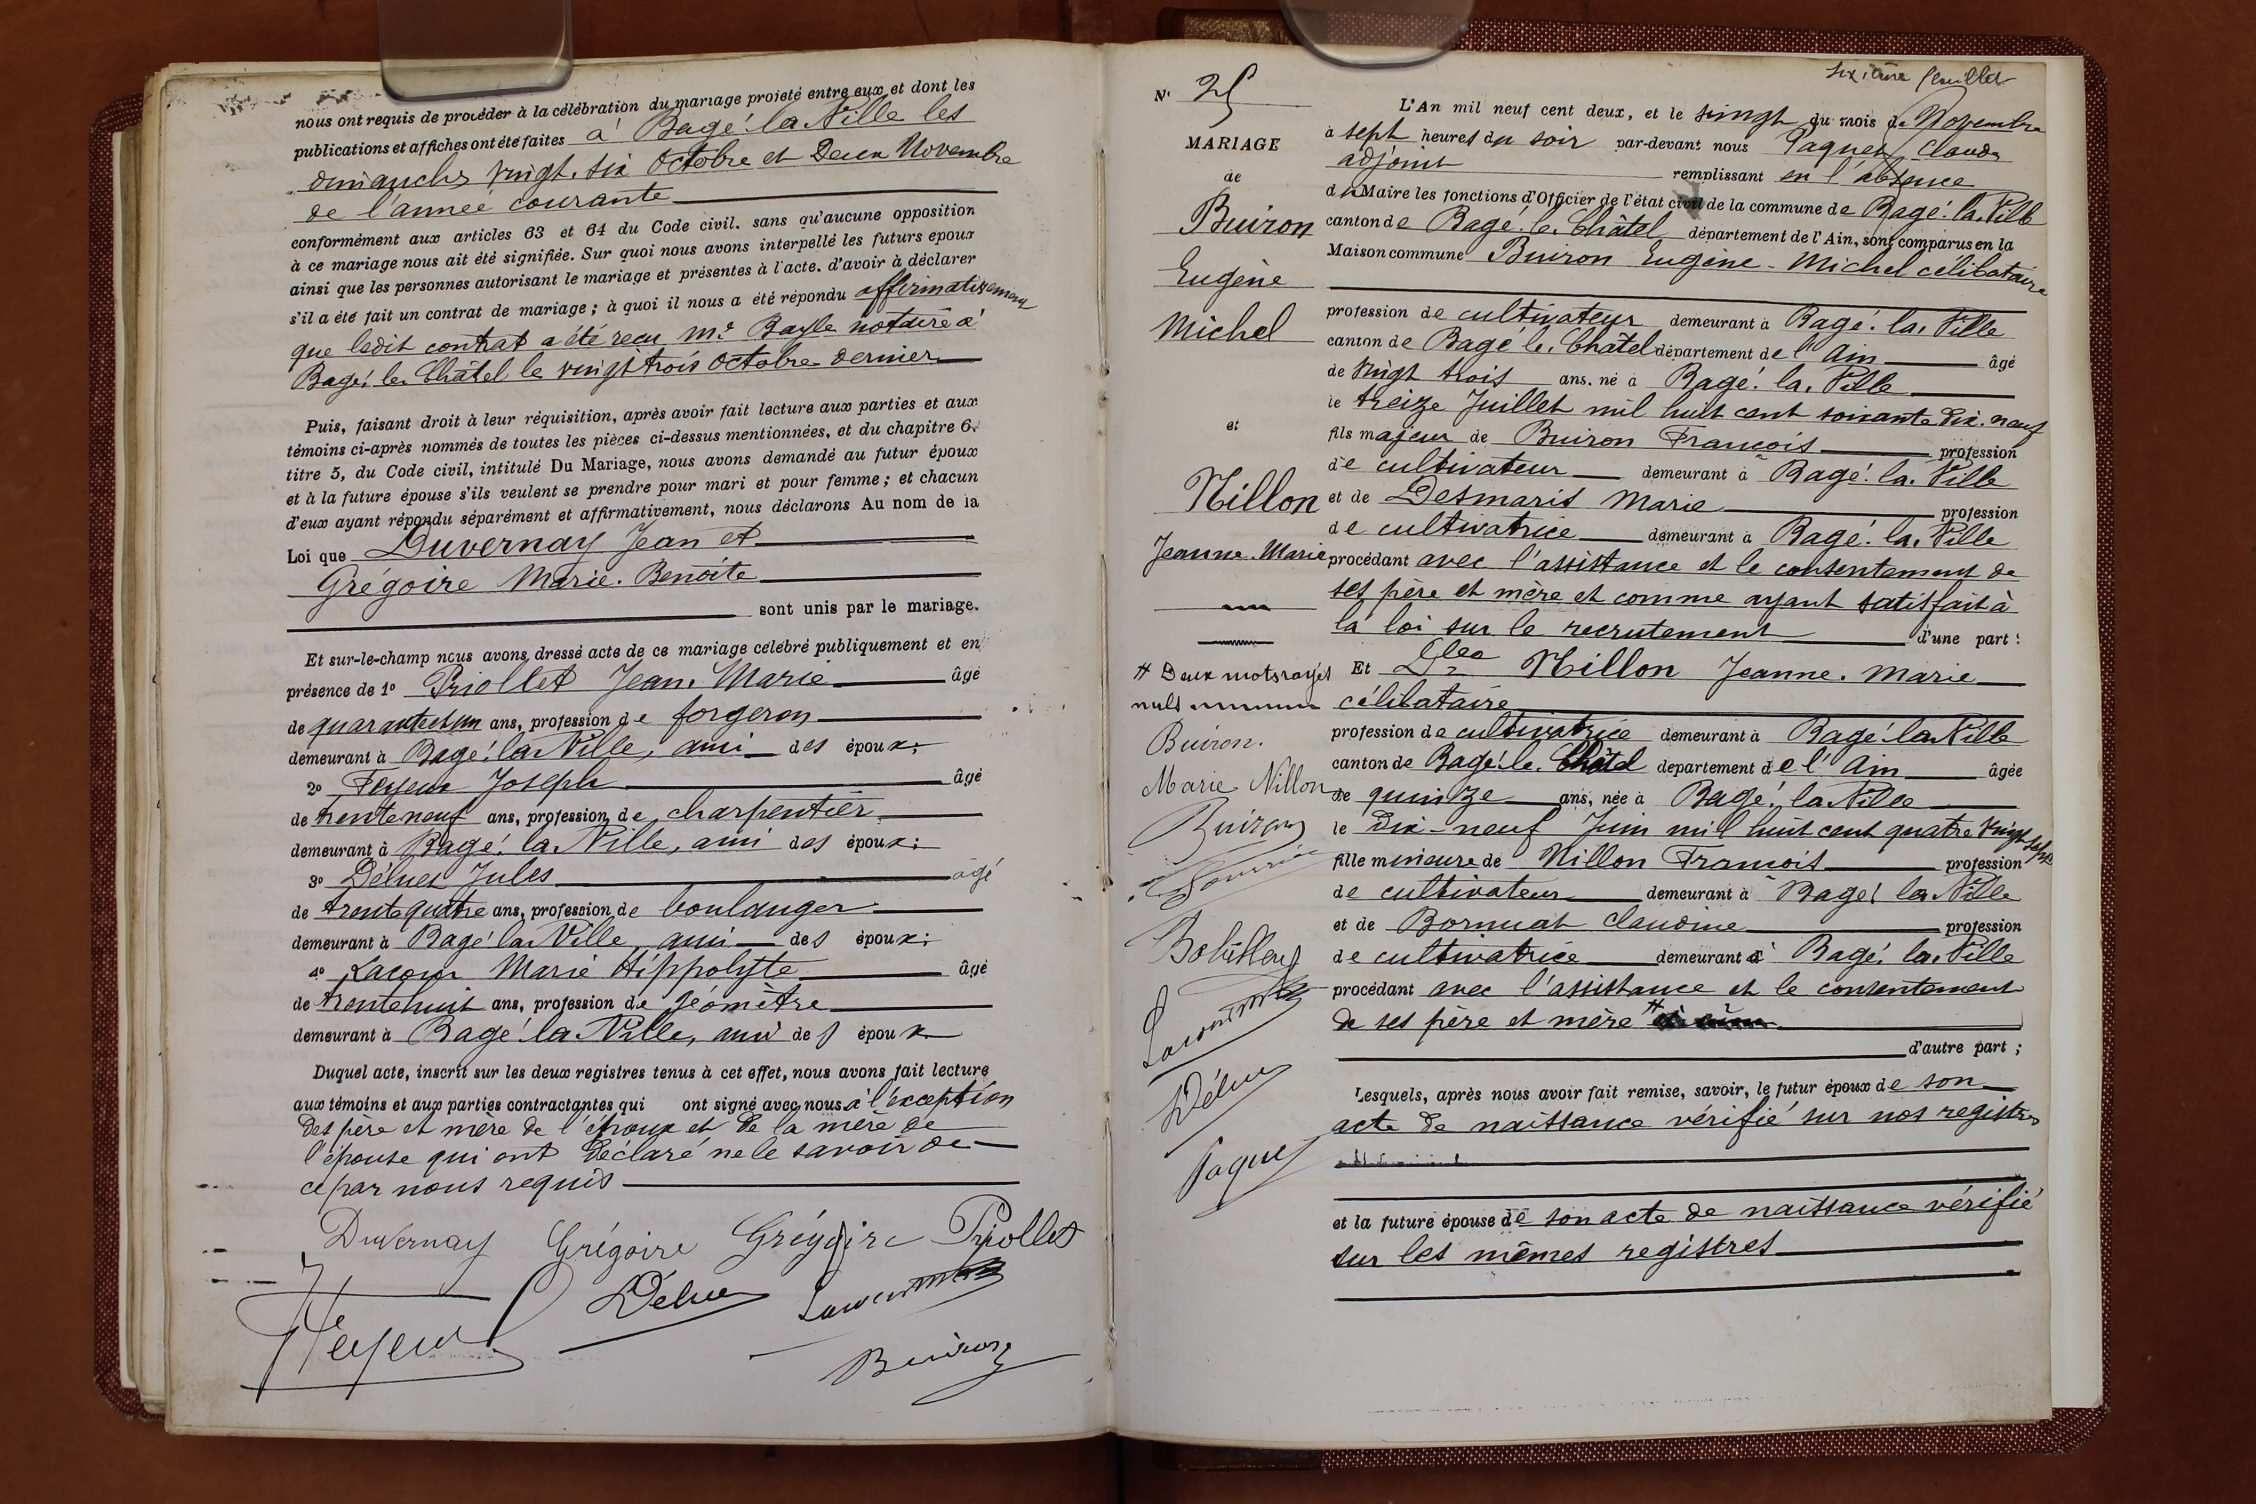 nous ont requis de procéder à la célébration du mariage projeté entre eux et dont les
publications et affiches ont été faites à Bagé-la-Ville les
dimanches vingt-six Octobre et Deux Novembre
de l'année courante
conformément aux articles 63 et 64 du Code civil, sans qu'aucune opposition
à ce mariage nous ait été signifiée. Sur quoi nous avons interpellé les futurs époux
ainsi que les personnes autorisant le mariage et présentes à l'acte, d'avoir à déclarer
s'il a été fait un contrat de mariage; à quoi il nous a été répondu affirmativement
que ledit contrat a été reçu Me Bayle notaire à
Bagé-le-Châtel le vingt trois octobre dernier
Puis, faisant droit à leur réquisition, après avoir fait lecture aux parties et aux
témoins ci-après nommés de toutes les pièces ci-dessus mentionnées, et du chapitre 6,
titre 5, du Code civil, intitulé Du Mariage, nous avons demandé au futur époux
et à la future épouse s'ils veulent se prendre pour mari et pour femme; et chacun
d'eux ayant répondu séparément et affirmativement, nous déclarons Au nom de la
Loi que Duvernay Jean et
Grégoire Marie-Benoite
sont unis par le mariage.
Et sur-le-champ nous avons dressé acte de ce mariage célébré publiquement et en
présence de 1o Priollet Jean-Marie âgé
de quarante et un ans, profession de forgeron
demeurant à Bagé-la-Ville, ami des époux;
2o Feyeux Joseph âgé
de trente neuf ans, profession de charpentier
demeurant à Bagé-la-Ville, ami des époux;
3o Déluet Jules âgé
de trente quatre ans, profession de boulanger
demeurant à Bagé-la-Ville, ami des époux;
4o Lacour Marie Hippolyte âgé
de trente huit ans, profession de géomètre
demeurant à Bagé-la-Ville, ami des époux
Duquel acte, inscrit sur les deux registres tenus à cet effet, nous avons fait lecture
aux témoins et aux parties contractantes qui ont signé avec nous à l'exception
des père et mère de l'époux et de la mère de
l'épouse qui ont déclaré ne le savoir de
ce par nous requis
Duvernay Grégoire Grégoire Priollet
Feyeux Délue Lacour
Buiron
sixième feuillet
No 25
MARIAGE
de
Buiron
Eugène
Michel
et
Nillon
Jeanne-Marie
# Deux mots rayés
nuls
Buiron.
Marie Nillon
Buiron
Lacour
Délue
Paquet
L'An mil neuf cent deux, et le vingt du mois de Novembre
à sept heures du soir par-devant nous Paquet Claude
adjoint remplissant en l'absence
du Maire les fonctions d'Officier de l'état civil de la commune de Bagé-la-Ville
canton de Bagé-le-Châtel département de l'Ain, sont comparus en la
Maison commune Buiron Eugène-Michel célibataire
profession de cultivateur demeurant à Bagé-la-Ville
canton de Bagé-le-Châtel département de l'Ain âgé
de vingt trois ans, né à Bagé-la-Ville
le treize Juillet mil huit cent soixante dix-neuf
fils majeur de Buiron François profession
de cultivateur demeurant à Bagé-la-Ville
et de Desmaris Marie profession
de cultivatrice demeurant à Bagé-la-Ville
procédant avec l'assistance et le consentement de
ses père et mère et comme ayant satisfait à
la loi sur le recrutement d'une part;
Et Dlle Nillon Jeanne-Marie
célibataire
profession de cultivatrice demeurant à Bagé-la-Ville
canton de Bagé-le-Châtel département de l'Ain âgée
de quinze ans, née à Bagé-la-Ville
le dix-neuf Juin mil huit cent quatre vingt sept
fille mineure de Nillon François profession
de cultivateur demeurant à Bagé-la-Ville
et de Bornuat Claudine profession
de cultivatrice demeurant à Bagé-la-Ville
procédant avec l'assistance et le consentement
de ses père et mère #
d'autre part;
Lesquels, après nous avoir fait remise, savoir, le futur époux de son
acte de naissance vérifié sur nos registres
et la future épouse de son acte de naissance vérifié
sur les mêmes registres